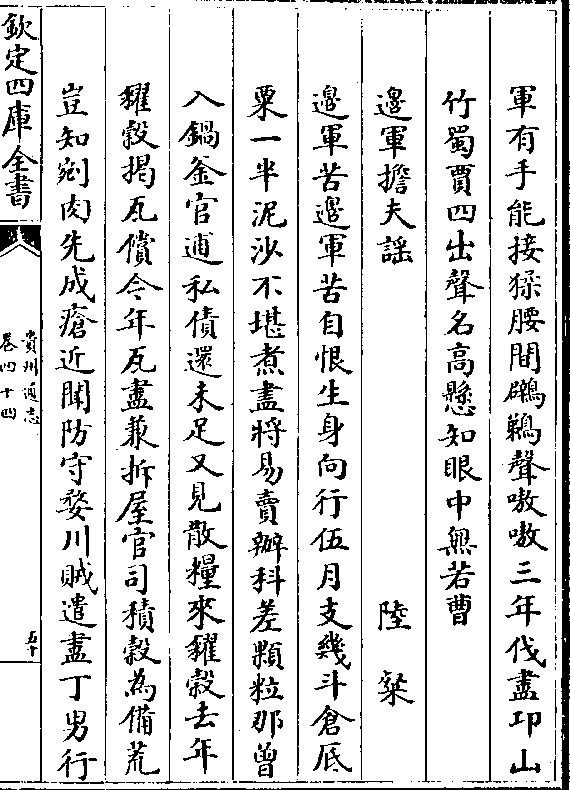 軍有手能接猱腰間鸊鵜聲嗷嗷三年伐盡邛山
竹蜀賈四出聲名高懸知眼中無若曹
邊軍擔夫謡 陸粲
邊軍苦邊軍苦自恨生身向行伍月支幾斗倉厎
粟一半泥沙不堪煮盡將易賣辦科差顆粒那曾
入鍋釜官逋私債還未足又見散糧來糴穀去年
糴穀揭瓦償今年瓦盡兼拆屋官司積穀為備荒
豈知剜肉先成瘡近聞防守婺川賊遣盡丁男行
欽定四庫全書
貴州通志
卷四十四
五十